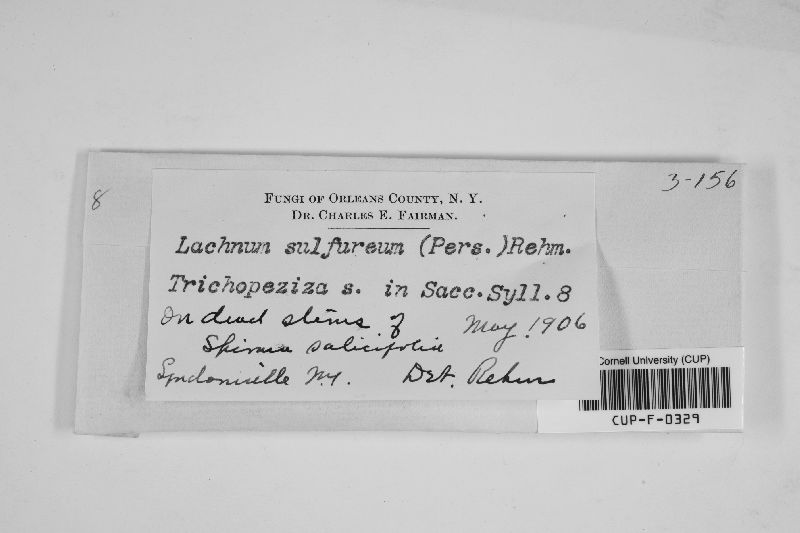 3-156
8
FUNGI OF ORLEANS COUNTY, N. Y.
DR. CHARLES E. FAIRMAN.
Lachnum sulfureum (Pers.)Rehm.
Trichopeziza s. in Sacc.Syll.8
On dead stems of May. 1906
Spiraea salicifolia
Lyndonville N.Y. Det. Rehm
Cornell University (CUP)
CUP-F-0329